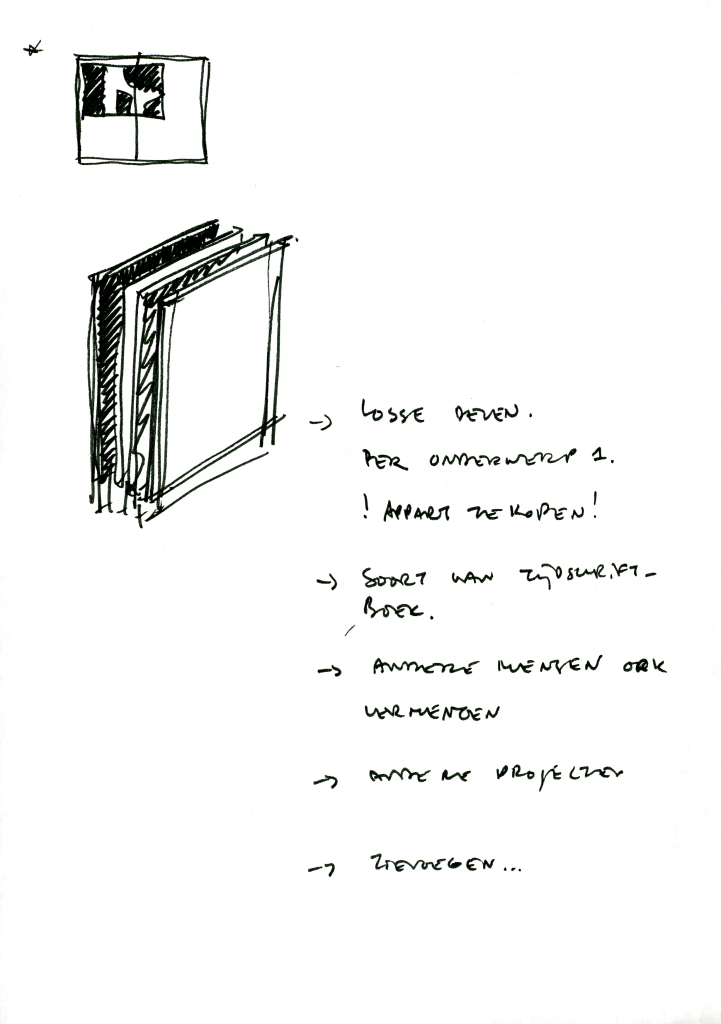 → LOSSE DELEN.
PER ONDERWERP 1.
! APPART TE KOPEN!
→ SOORT VAN TIJDSCHRIFT-
BOEK.
→ ANDERE MENSEN OOK
VERMENGEN
→ ANDERE PROJECTEN
→ TOEVOEGEN...